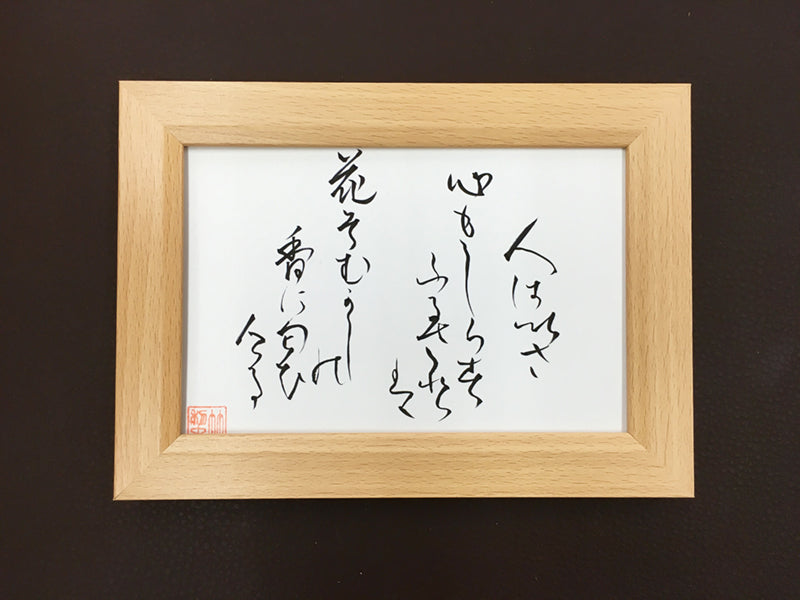 人はいさ
心もしらす
ふるさと
は
花そむかし
の
香に匂ひ
ける